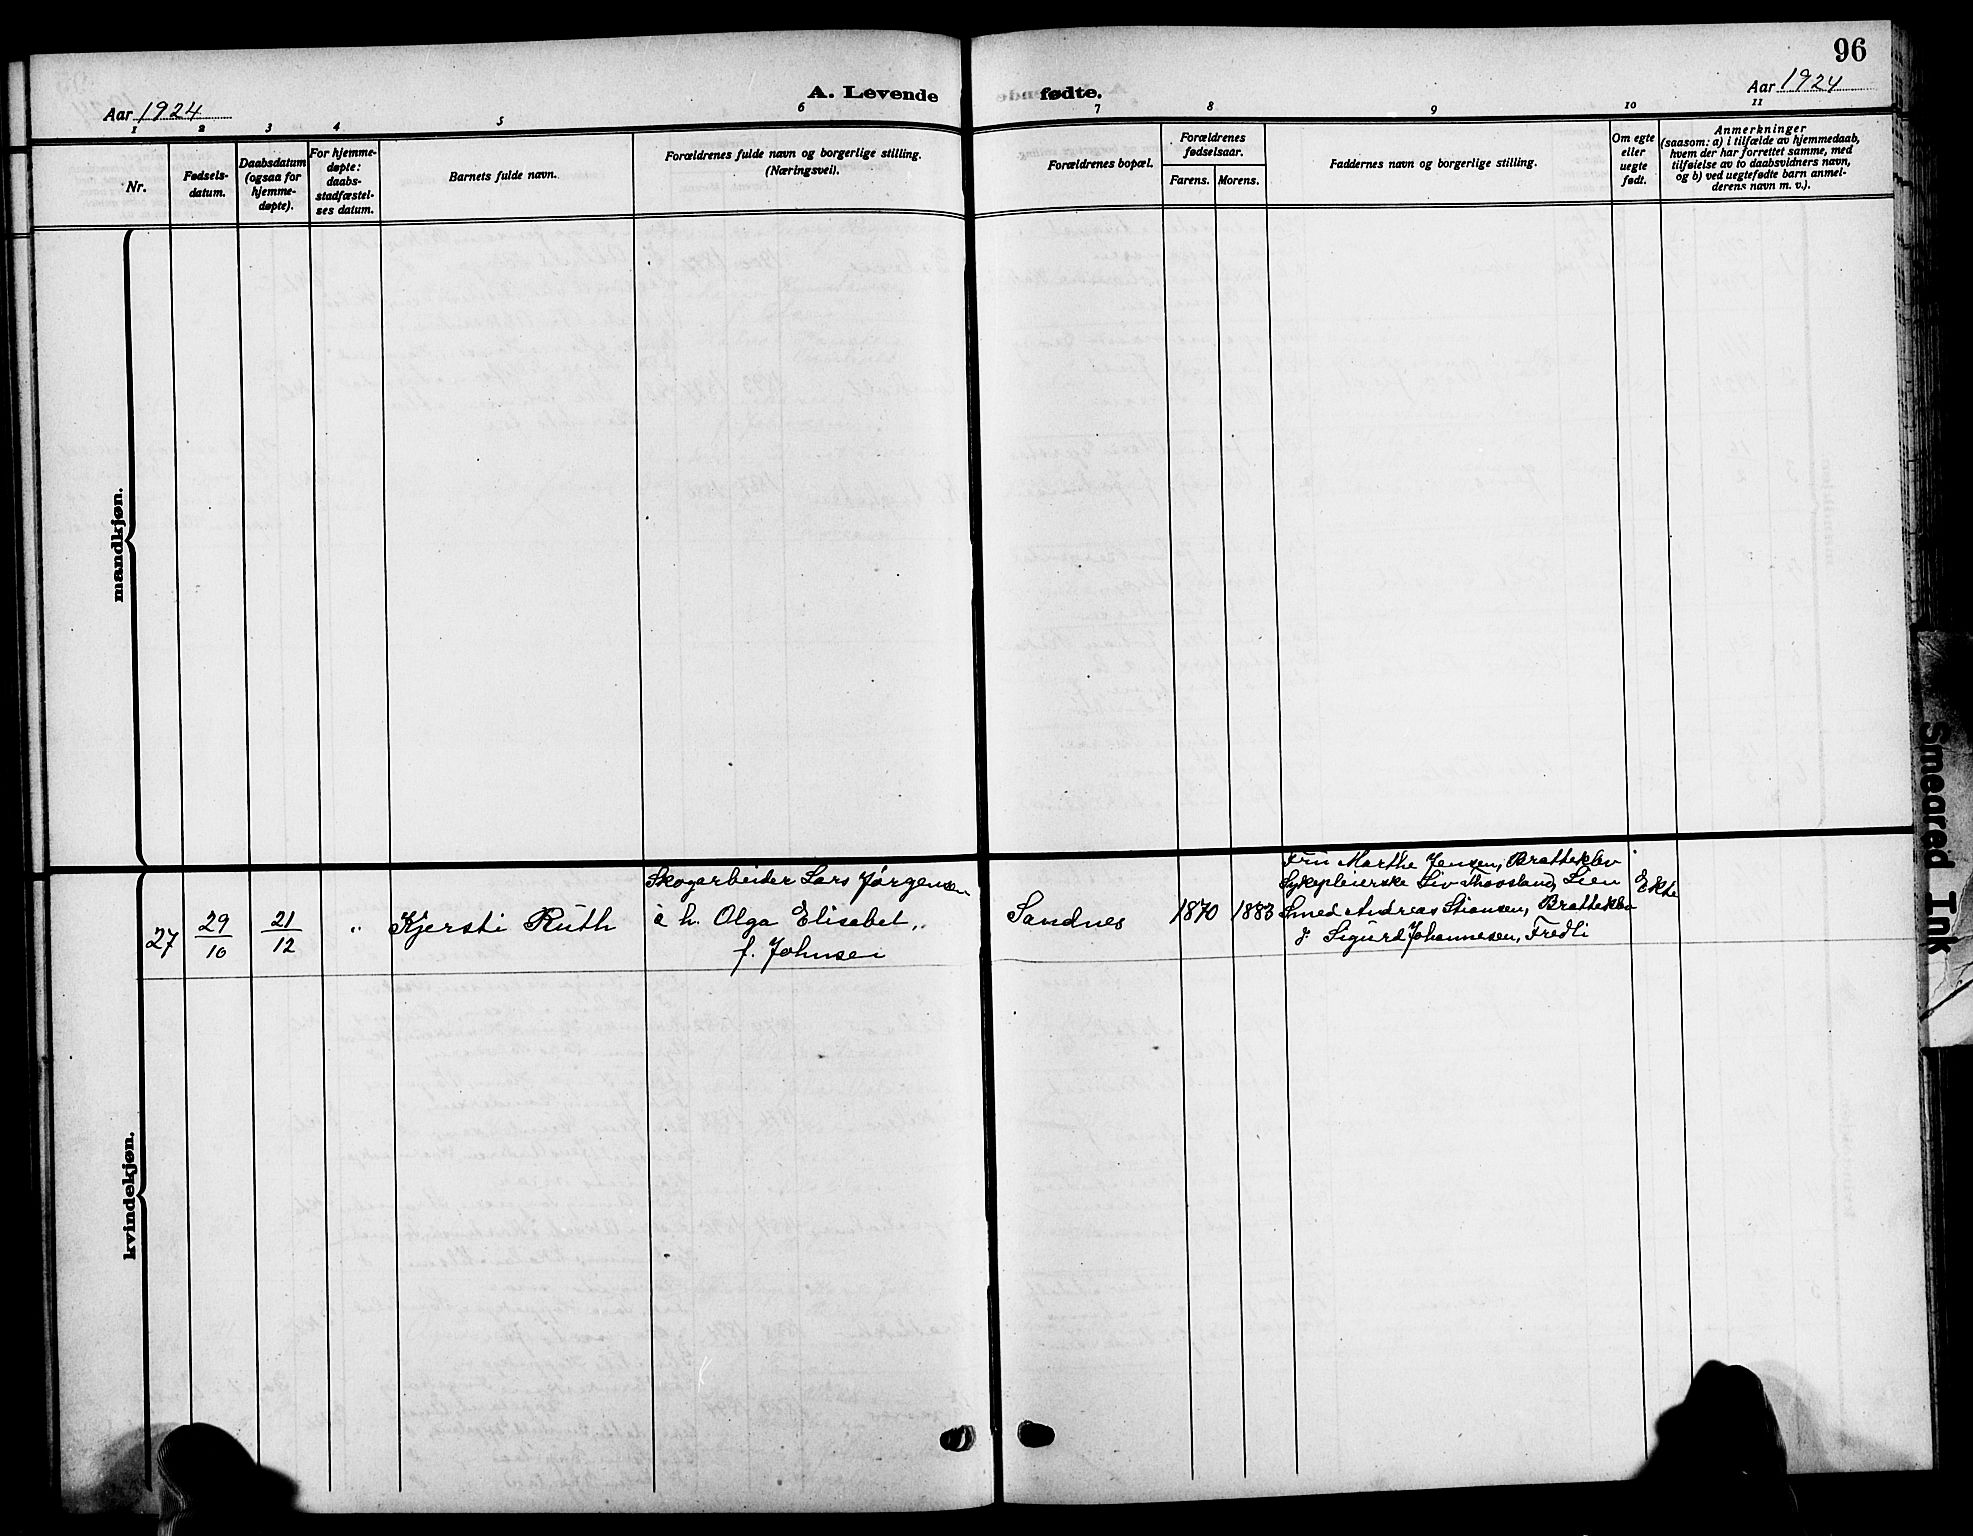 96
Aar 1924
A. Levende fødte.
Aar 1924
1 2 3 4 5 6 7 8 9 10 11
Nr.
Fødsels-
datum.
Daabsdatum
(ogsaa for
hjemme-
døpte).
For hjemme-
døpte:
daabs-
stadfæstel-
ses datum.
Barnets fulde navn.
Forældrenes fulde navn og borgerlige stilling.
(Næringsvei).
Forældrenes bopæl.
Forældrenes
fødselsaar.
Farens. Morens.
Faddernes navn og borgerlige stilling.
Om egte
eller
uegte
født.
Anmerkninger
(saasom: a) i tilfælde av hjemmedaab,
hvem der har forrettet samme, med
tilføielse av to daabsvidners navn,
og b) ved uegtefødte barn anmel-
derens navn m. v.).
mandkjøn.
kvindekjøn.
27
29
10
21
12
"
Kjersti Ruth
Skogarbeider Lars Jørgensen
å h. Olga Elisabet,
f. Johnsen
Sandnes
1870
1883
Fru Marthe Jensen, Bratteklev
Sykepleierske Liv Thovsland, Lien
Smed Andreas Stiansen, Bratteklev
Sigurd Johannesen, Fredli
Ekte
Smeared Ink